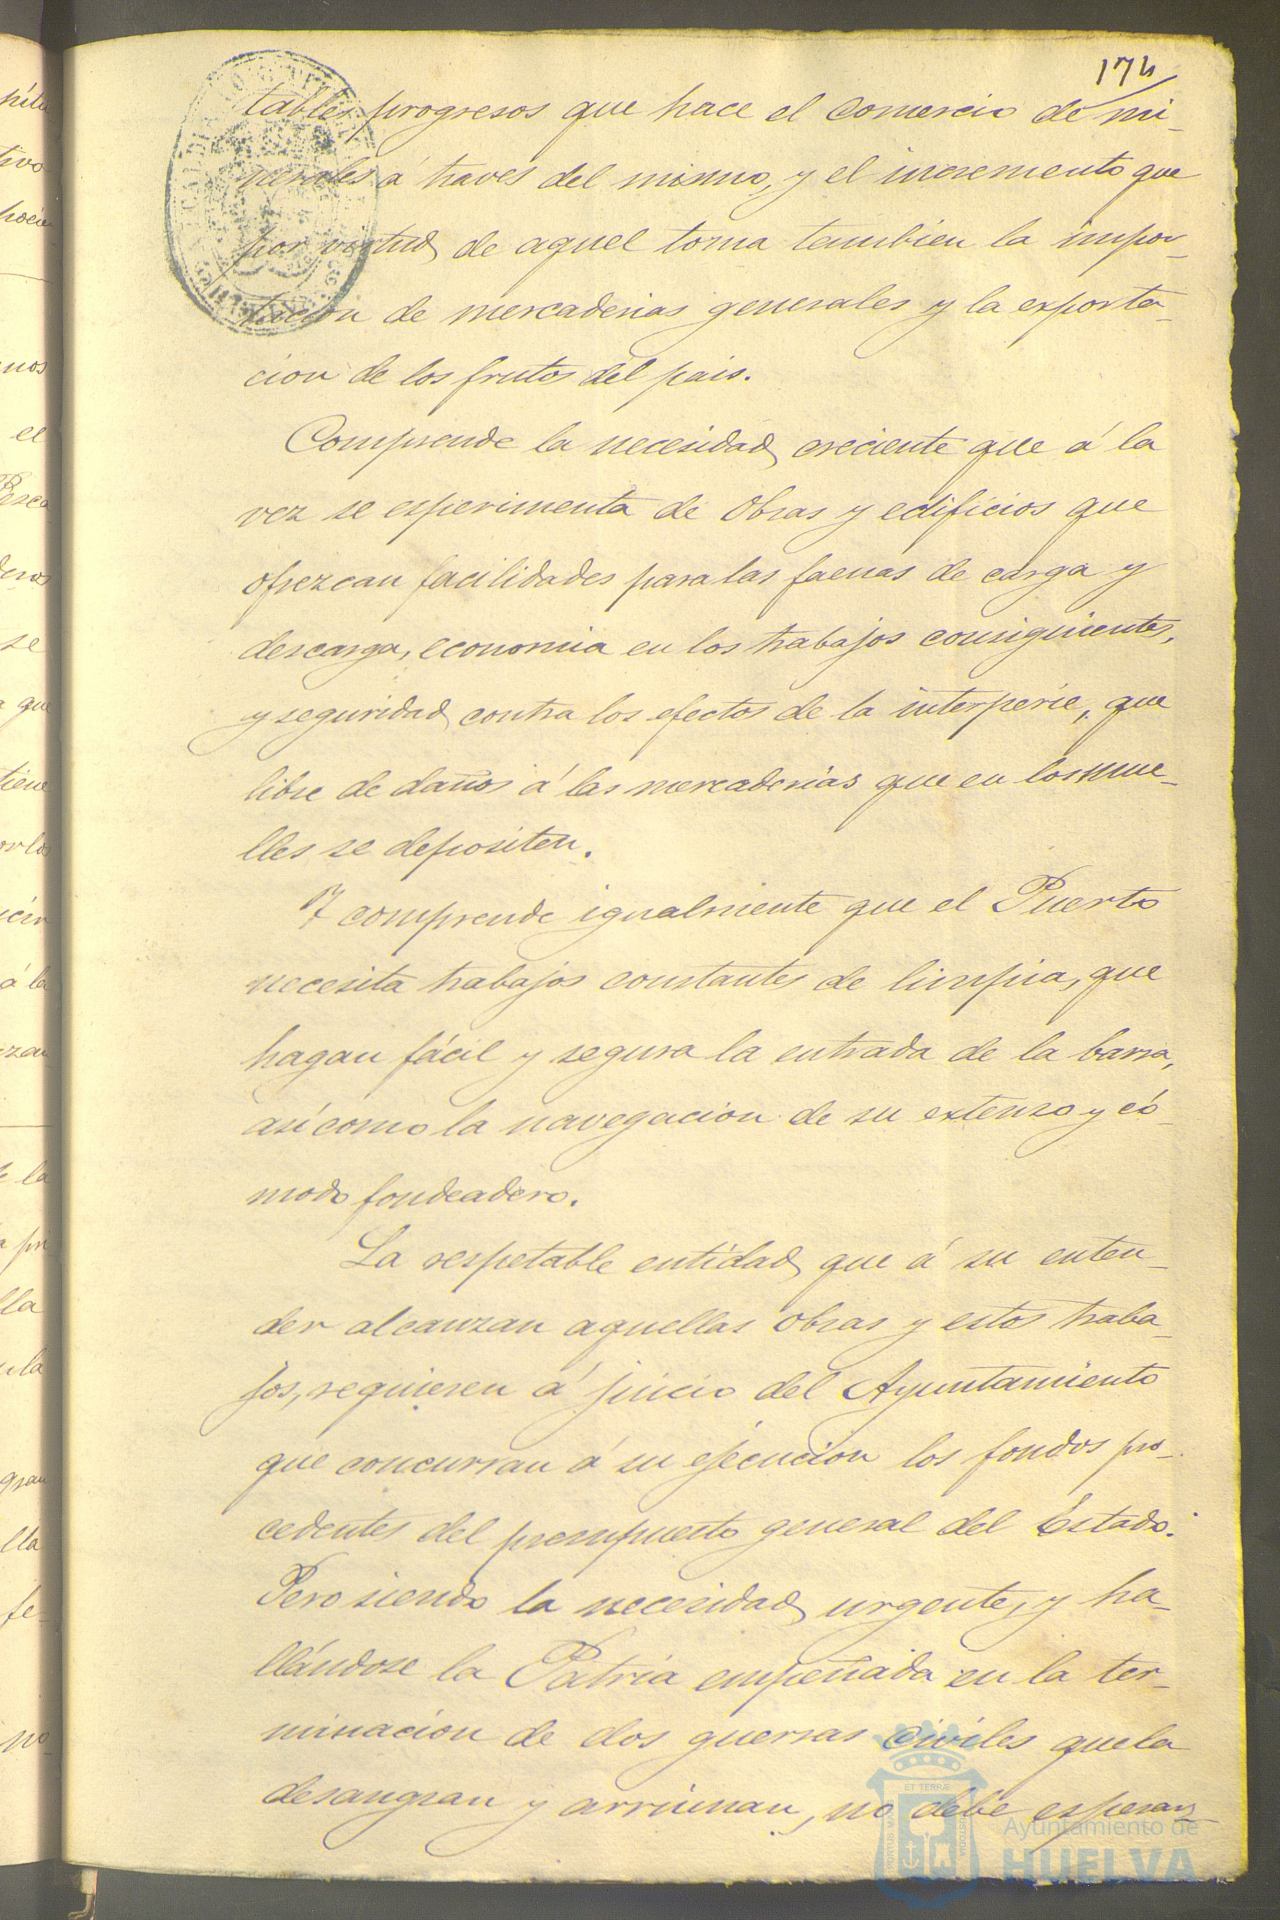 174
tables progresos que hace el comercio de mi-
nerales á traves del mismo, y el incremento que
por virtud de aquel toma tambien la impor-
tacion de mercaderias generales y la exporta-
cion de los frutos del pais.
Comprende la necesidad creciente que á la
vez se esperimenta de obras y edificios que
ofrezcan facilidades para las faenas de carga y
descarga, economia en los trabajos consiguientes,
y seguridad contra los efectos de la interperie, que
libre de daños á las mercaderias que en los mue-
lles se depositen.
Y comprende igualmente que el Puerto
necesita trabajos constantes de limpia, que
hagan fácil y segura la entrada de la barra,
asi como la navegacion de su extenso y có-
modo fondeadero.
La respetable entidad que á su enten-
der alcanzan aquellas obras y estos traba-
jos, requieren á juicio del Ayuntamiento
que concurran á su ejecucion los fondos pro-
cedentes del presupuesto general del Estado.
Pero siendo la necesidad urgente, y ha-
llándose la Patria empeñada en la ter-
minacion de dos guerras civiles que la
desangran y arruinan, no debe esperar
ET TERRÆ
PORTUS MARIS
CUSTODIA
Ayuntamiento de
HUELVA